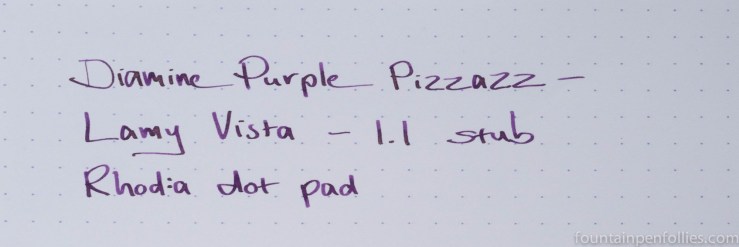 Diamine Purple Pizzazz –
Lamy Vista – 1.1 stub
Rhodia dot pad
fountainpenfollies.com